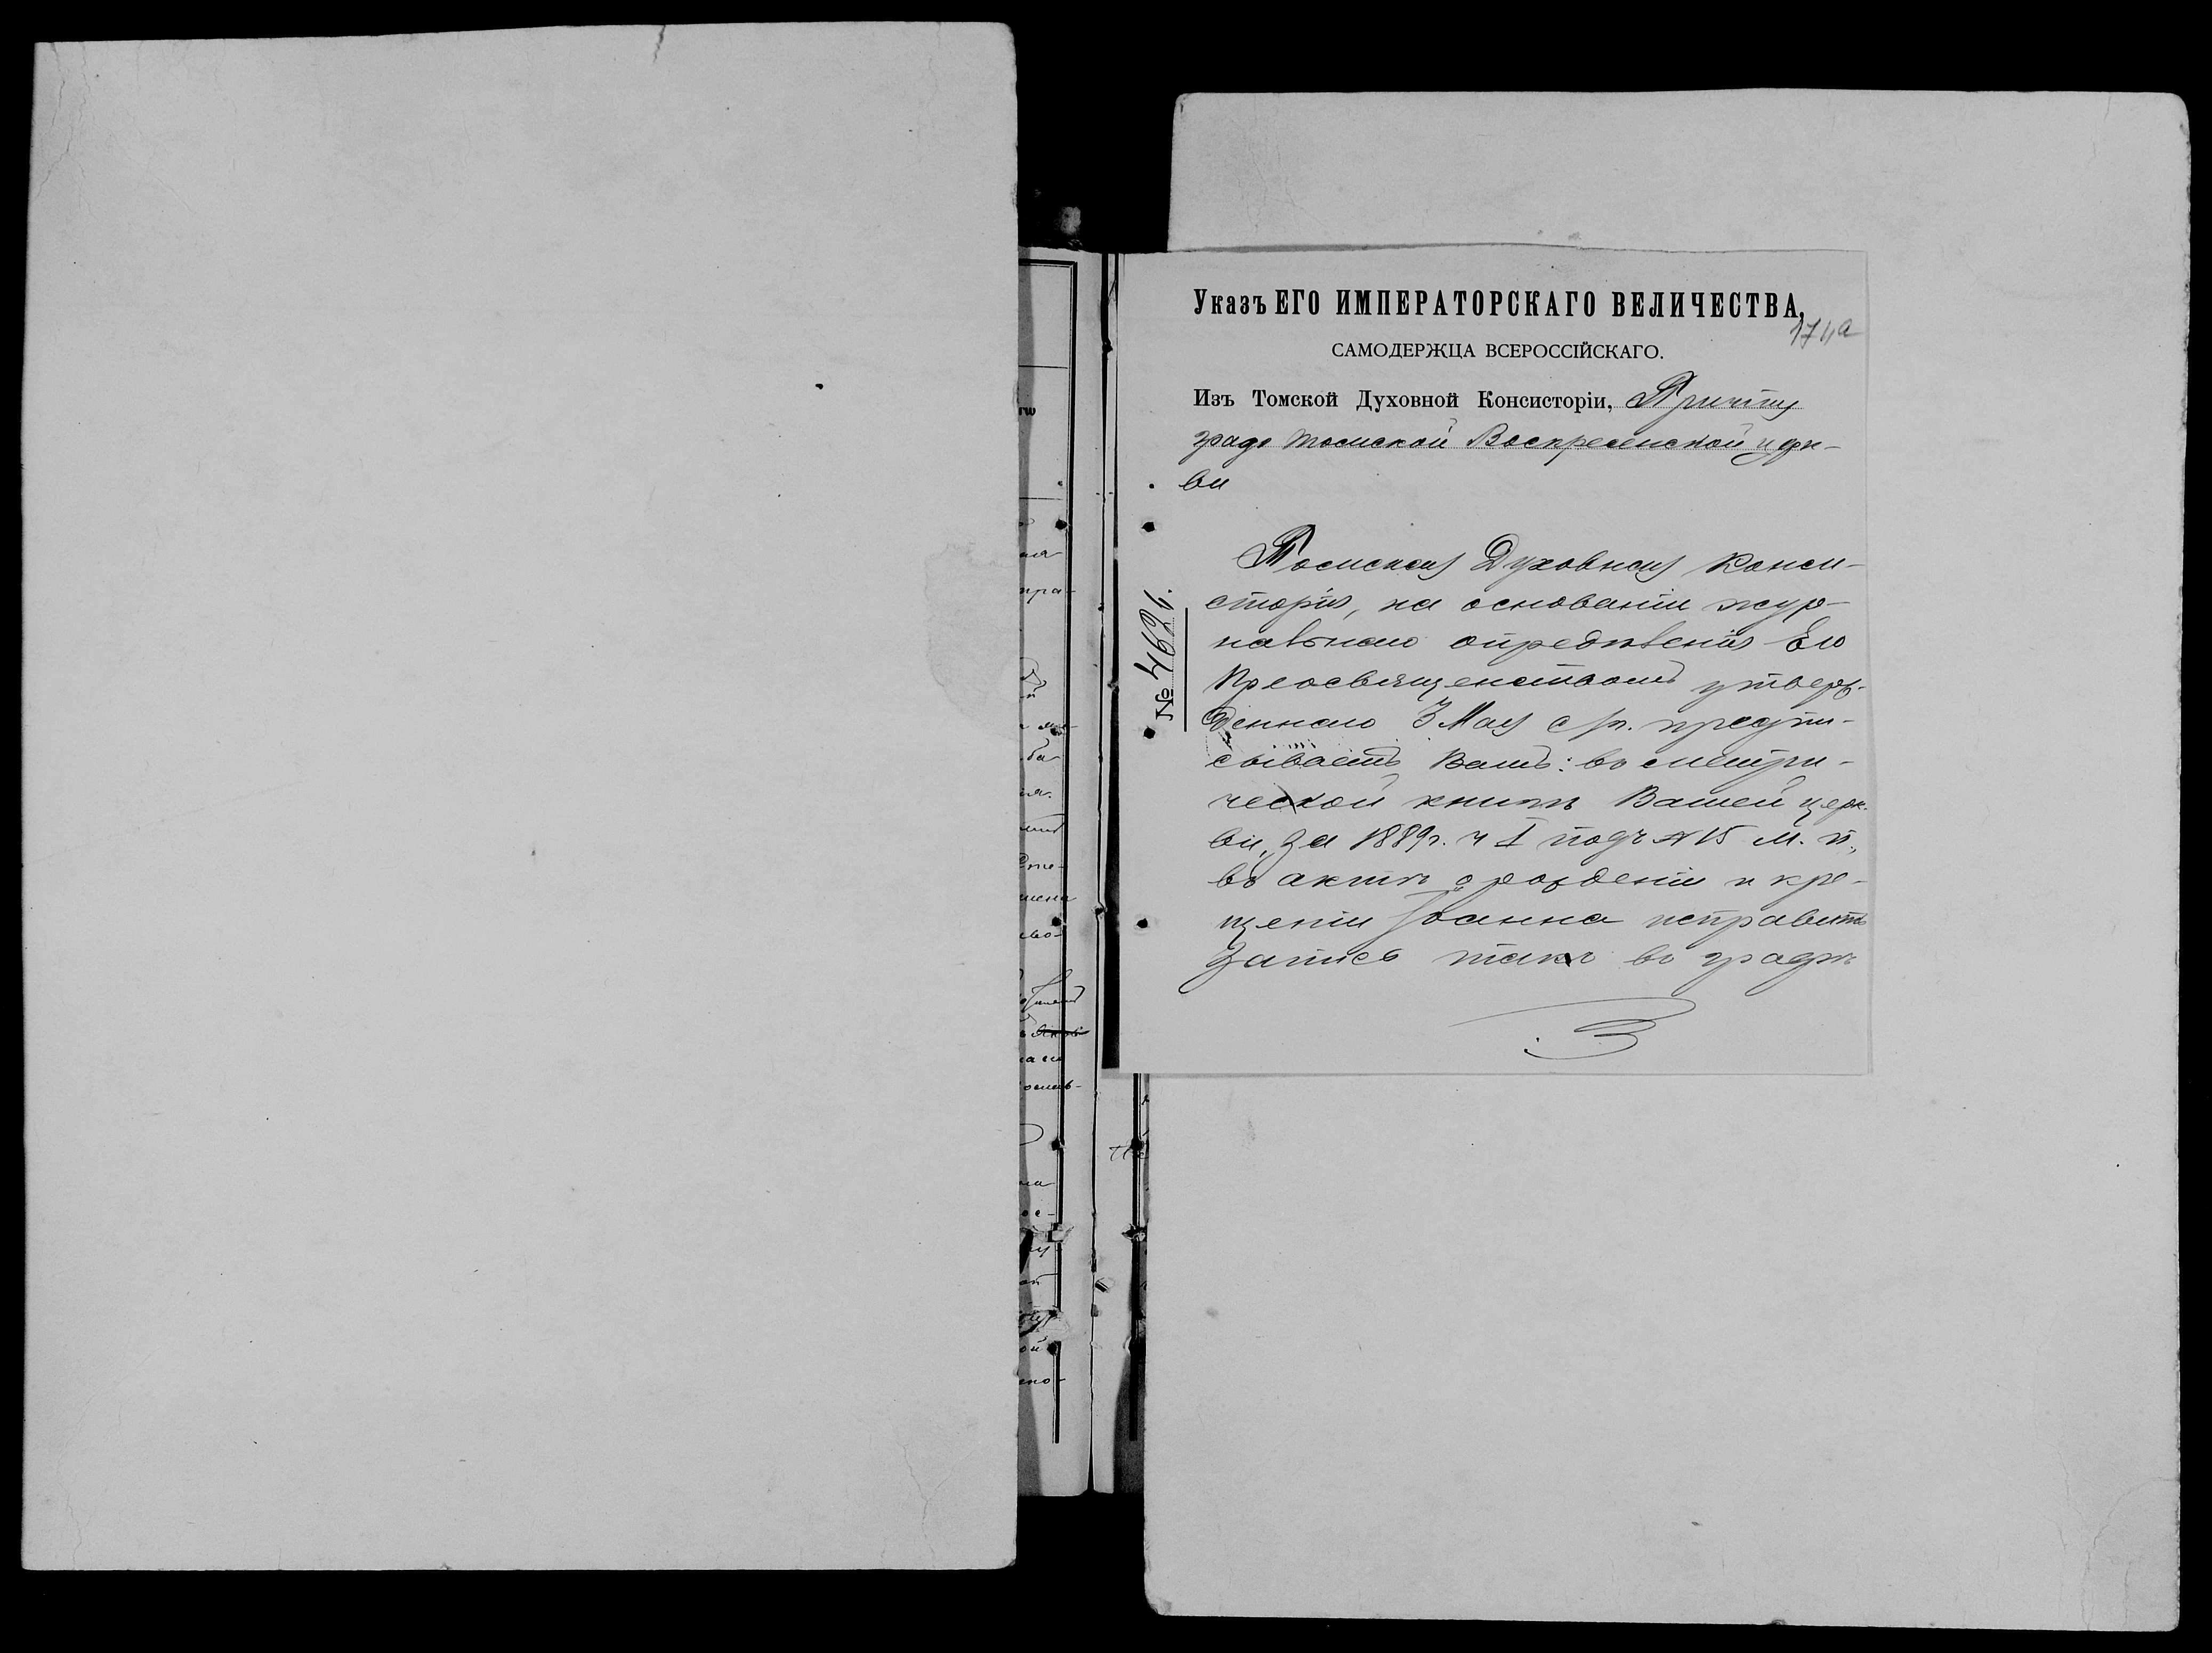 Указъ ЕГО ИМПЕРАТОРСКАГО ВЕЛИЧЕСТВА,
174а
САМОДЕРЖЦА ВСЕРОССІЙСКАГО.
Изъ Томской Духовной Консисторіи, Причту
градо Томской Воскресенской церк-
ви
№ 4621.
Томская Духовная Конси-
сторія, на основаніи жур-
нальнаго опредѣленія Его
Преосвященствомъ утверж-
деннаго 3 Мая с/г. предпи-
сываетъ Вамъ: въ метри-
ческой книгѣ Вашей церк-
ви, за 1889г. ч I подъ № 15 м. п.,
въ актѣ о рожденіи и кре-
щеніи Іоанна исправить
запись такъ въ графѣ